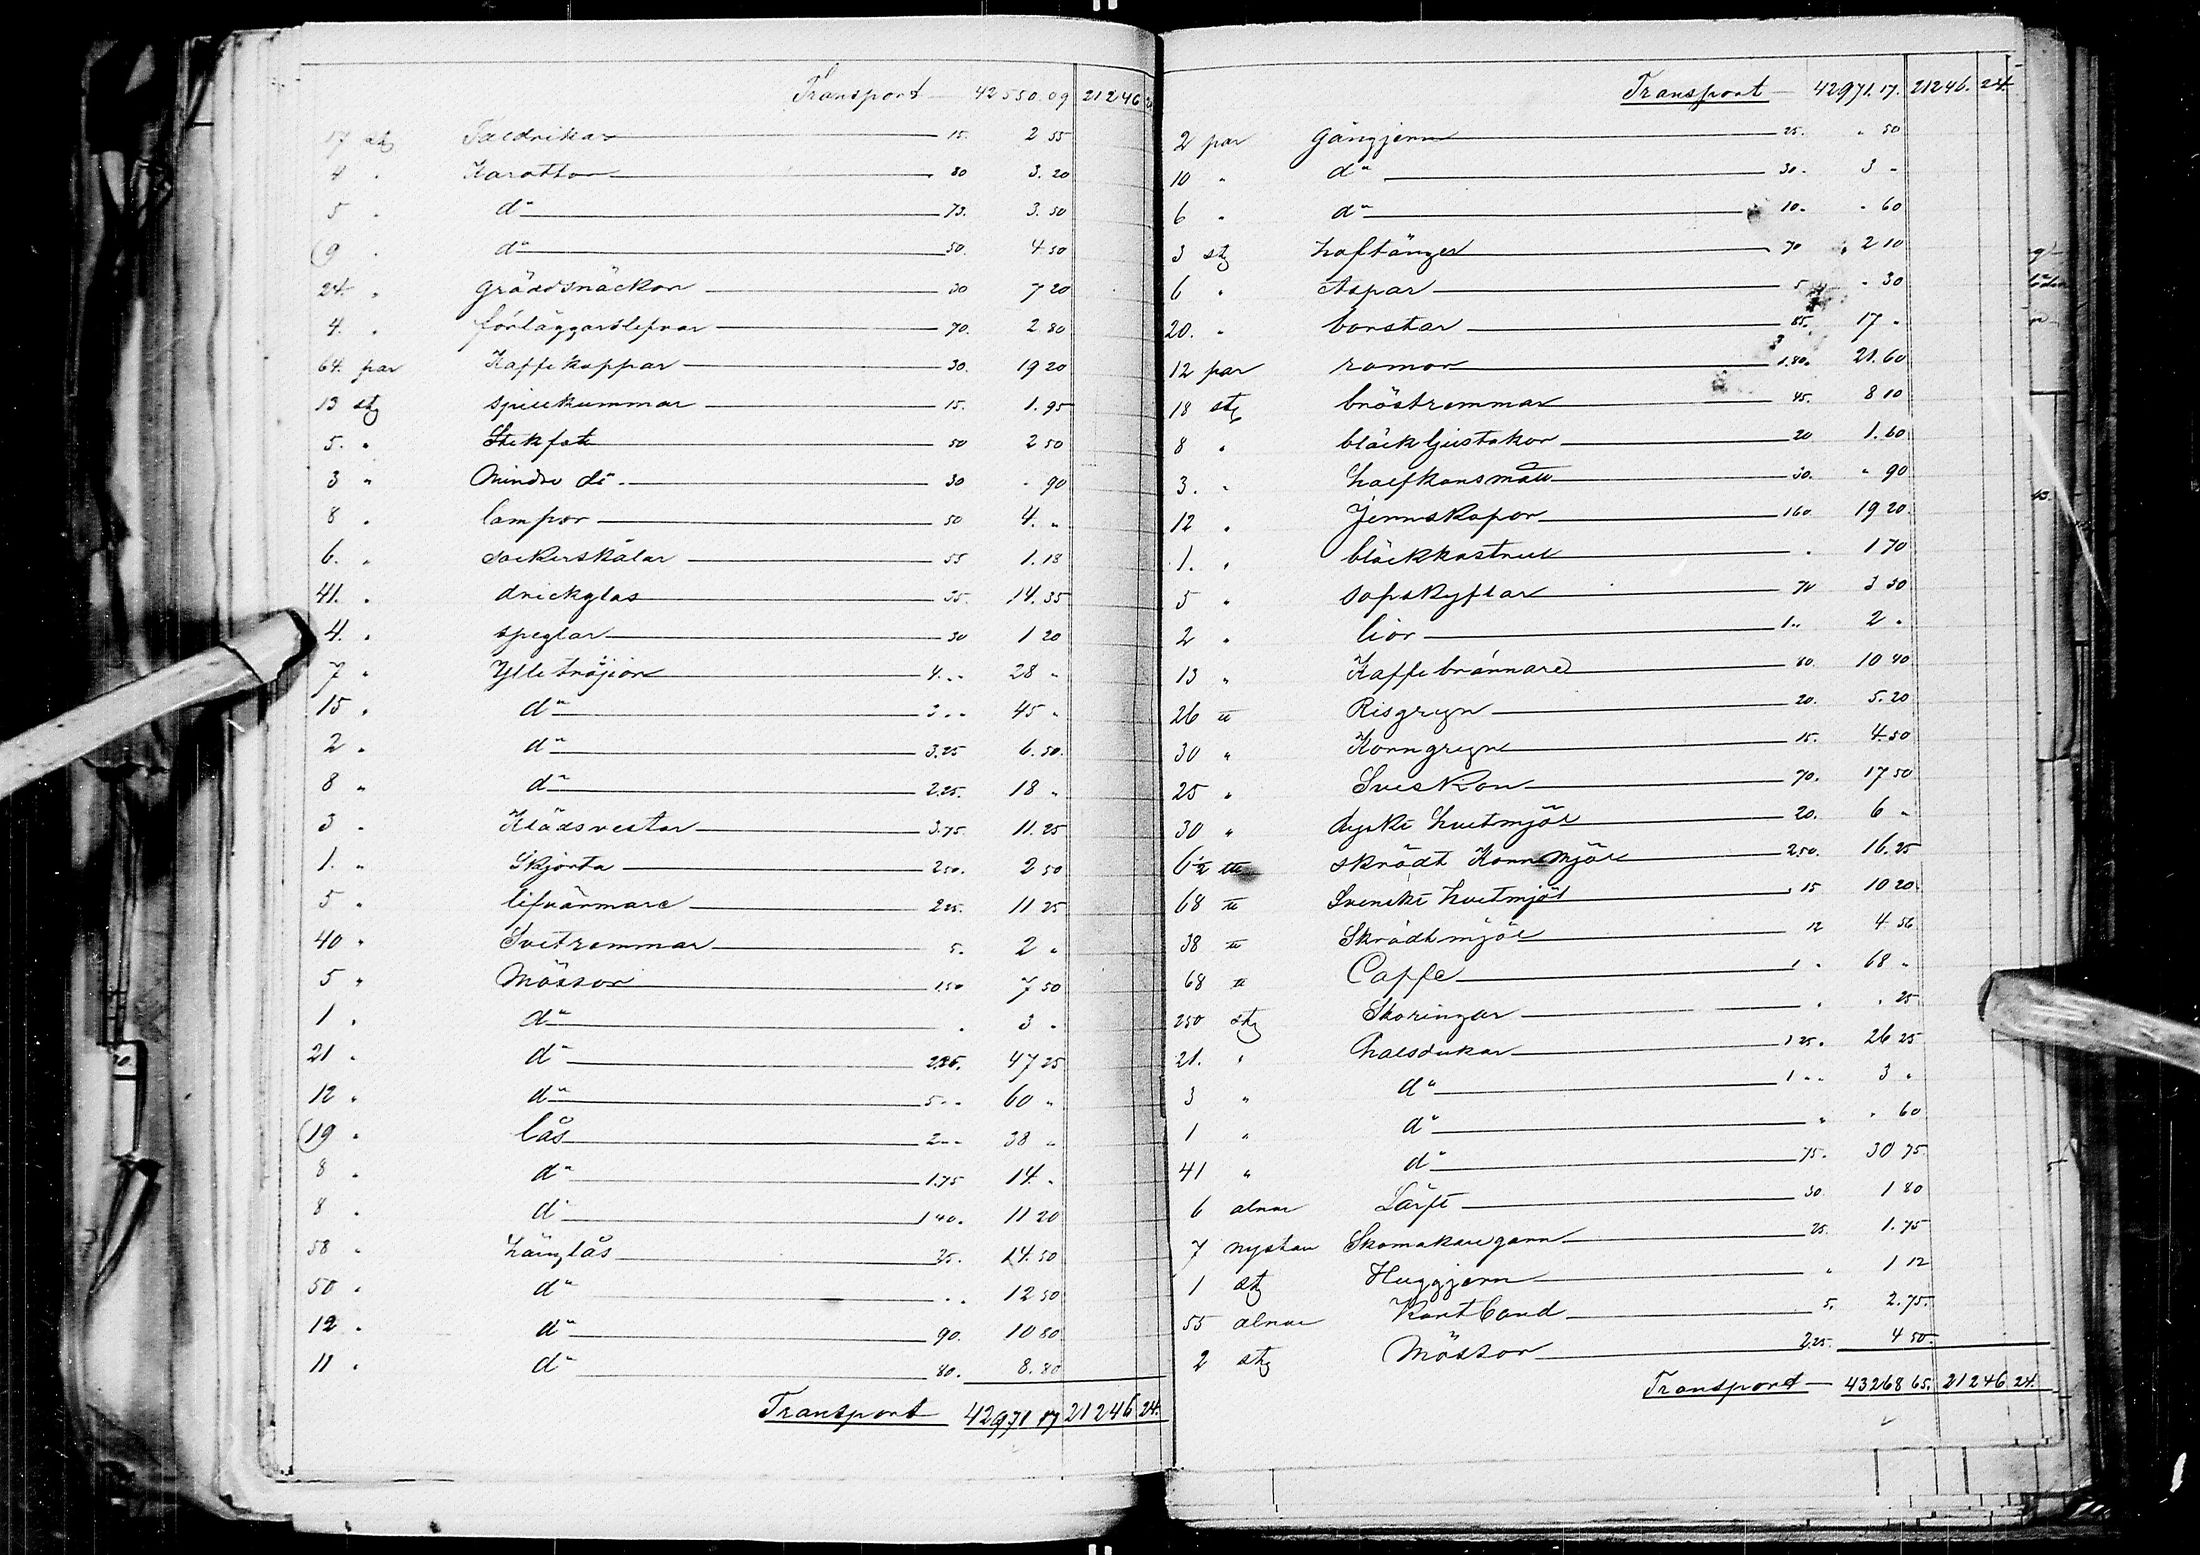 Transport 42550.09 21246
17 stg Taldrikar 15. 2 55
4 " Karotter 80 3. 20
5 " d:o 73. 3. 50
9 " d:o 50. 4 50
24. " gräddsnäckor 30 7 20
4. " förläggarslefvar 70. 2 80
64. par Kaffekoppar 30. 19 20
13 stg spilkummar 15. 1. 95
5. " Stekfat 50 2 50
3 " Mindre d:o 30 " 90
8 " lampor 50 4. "
6. " sockerskålar 55
41. " drickglas 35. 14. 35
4. " speglar 30 1 20
7 " Ylletröjor 4. " 28 "
15 " d:o 3 " 45 "
2 " d:o 3.25 6. 50.
8 " d:o 2.25. 18 "
3 " Klädsvestar 3.75. 11. 25
1. " Skjorta 2.50. 2 50
5 " lifvärmare 2.25. 11 25
40 " Svetremmar 5. 2 "
5 " Mössor 1.50 7 50
1 " d:o " 3 "
21 " d:o 2.25. 47 25
12 " d:o 5 " 60 "
19 " lås 2 " 38 "
8 " d:o 1.75 14. "
8 " d:o 1 40. 11 20
58 " hänglås 25. 14. 50
50 " d:o " 12 50
12 " d:o 90. 10 80
11 " d:o 80. 8. 80
Transport 42971 17 21246 24.
Transport 42971. 17. 21246. 24.
2 par Gångjern 25. " 50
10 " d:o 30. 3 "
6 " d:o 10. " 60
3 stg hoftänger 70 2 10
6 " Aspar 5 " 30
20. " borstar 85. 17 "
12 par remor 1.80. 21. 60
18 stg bröstremmar 45. 8 10
8 " bläckljustakor 20 1. 60
3. " halfkansmått 30. " 90
12 " Jernskopor 160. 19 20.
1. " bläckkastrull " 1 70
5 " sopskyflar 70 3 50
2 " liar 1. " 2 "
13 " Kaffebrännare 80. 10 40
26 ℔ Risgryn 20. 5. 20
30 " Korngryn 15. 4. 50
25 " Sviskon 70. 17 50
30 " tyskt hvetmjöl 20. 6 "
6 1/2 skrädt Kornmjöl 250. 16. 25
68 ℔ Svenskt hvetmjöl 15 10 20.
38 ℔ Skrädtmjöl 12 4 56
68 ℔ Caffe 1 " 68 "
250 stg Skoringar " " 25
21. " halsdukar 1 25. 26 25
3 " d:o 1 " 3 "
1 " d:o " " 60
41 " d:o 75. 30 75.
6 alnar Lärft 30. 1 80
7 nystan Skomakaregarn 25. 1. 75
1 stg Huggjern " 1 12
55 alnar Kantband 5. 2. 75.
2 stg Mössor 2.25. 4 50.
Transport 43268 65. 21246 24.